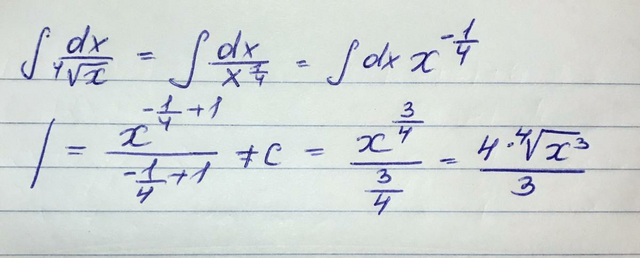 ∫ dx/⁴√x = ∫ dx/x^(1/4) = ∫ dx x^(-1/4)
/ = x^(-1/4+1)/(-1/4+1) + C = x^(3/4)/(3/4) = 4·⁴√x³/3